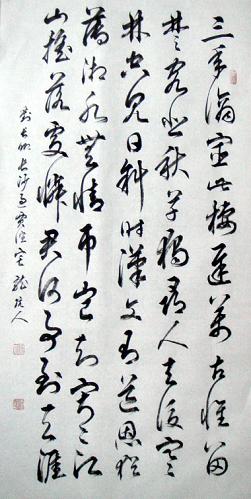 三年謫宦此棲遲萬古惟留
楚客悲秋草獨尋人去後寒
林空見日斜時漢文有道恩猶
薄湘水無情弔豈知寂寂江
山搖落處憐君何事到天涯
劉長卿長沙過賈誼宅